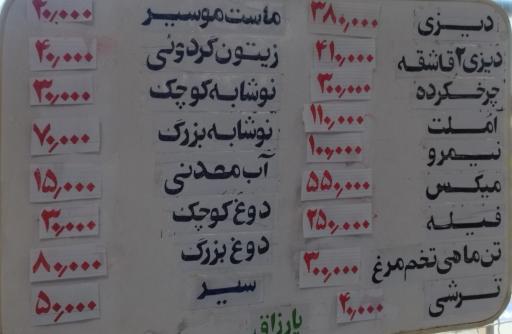 دیزی ۳۸۰٫۰۰۰
دیزی ۲ قاشقه ۴۱۰٫۰۰۰
چرخکرده ۳۰۰٫۰۰۰
املت ۱۱۰٫۰۰۰
نیمرو ۱۰۰٫۰۰۰
میکس ۵۵۰٫۰۰۰
فیله ۲۵۰٫۰۰۰
تن ماهی تخم مرغ ۳۰۰٫۰۰۰
ترشی ۴۰٫۰۰۰
ماست موسیر ۲۰٫۰۰۰
زیتون گردوئی ۴۰٫۰۰۰
نوشابه کوچک ۳۰٫۰۰۰
نوشابه بزرگ ۷۰٫۰۰۰
آب معدنی ۱۵٫۰۰۰
دوغ کوچک ۳۰٫۰۰۰
دوغ بزرگ ۸۰٫۰۰۰
سیر ۵۰٫۰۰۰
یارزاق